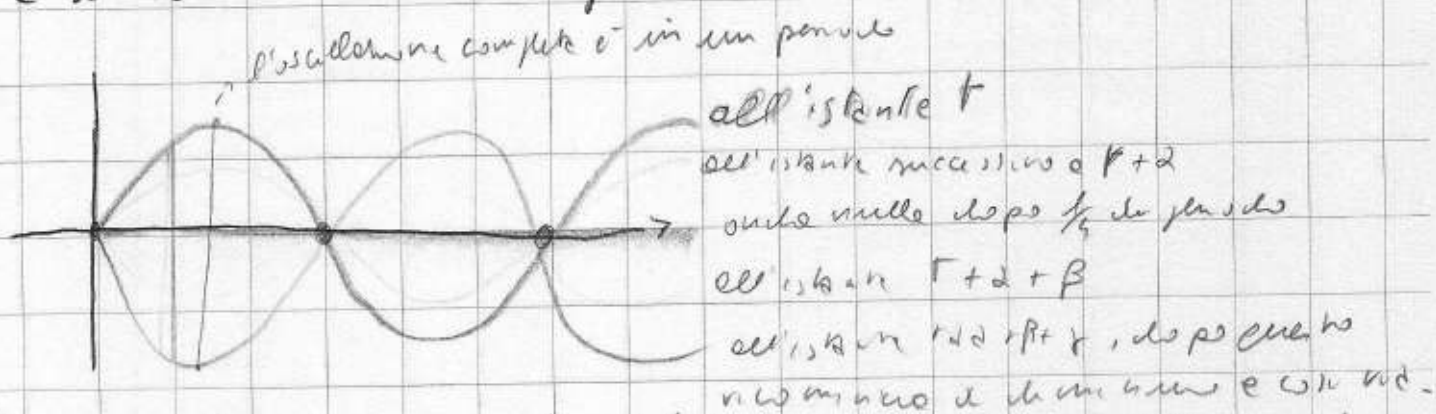 l'oscillazione completa è in un periodo
all'istante t
all'istante successivo a t + α
onda nulla dopo 1/4 di periodo
all'istante t + α + β
all'istante t + α + β + γ, dopo questo
ricomincia a diminuire e così via.